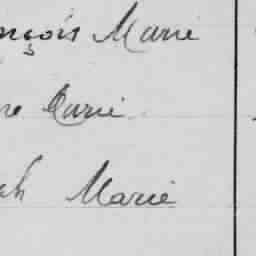 nçois Marie
re Curie
ph Marie